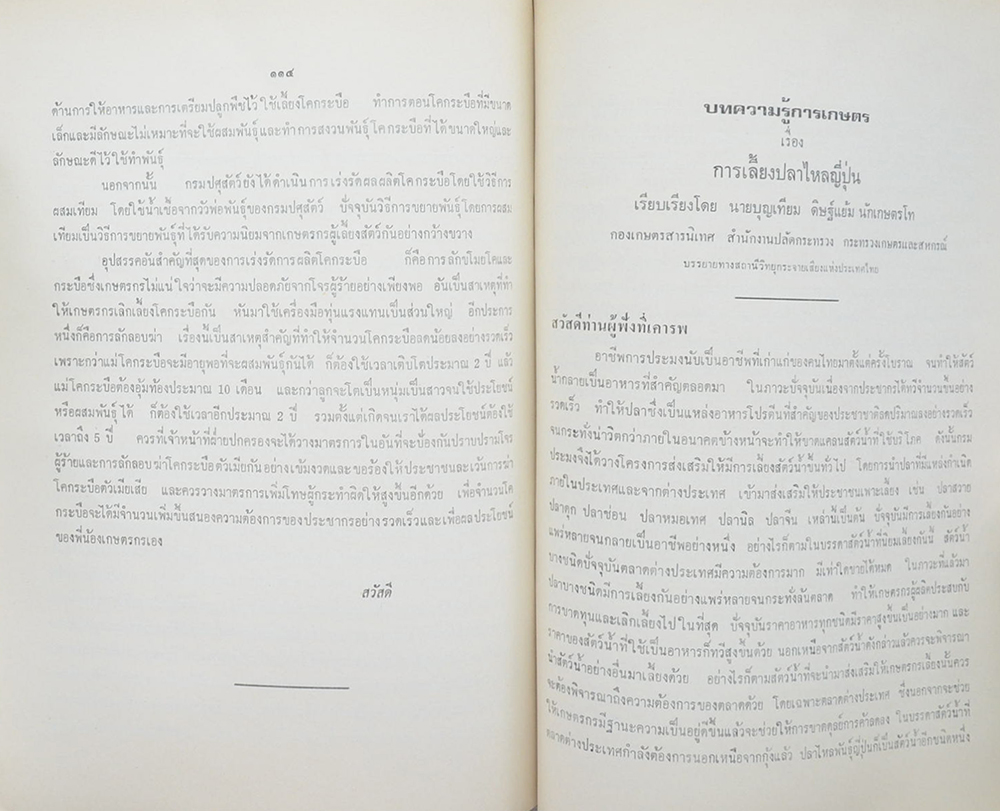 ๑๑๔
ด้านการให้อาหารและการเตรียมปลูกพืชไว้ ใช้เลี้ยงโคกระบือ ทำการตอนโคกระบือที่มีขนาด
เล็กและมีลักษณะไม่เหมาะที่จะใช้ผสมพันธุ์และทำการสงวนพันธุ์ โคกระบือที่ ได้ขนาดใหญ่และ
ลักษณะดีไว้ ใช้ทำพันธุ์
นอกจากนั้น กรมปศุสัตว์ ยังได้ดำเนินการเร่งรัดผลผลิตโคกระบือโดยใช้วิธีการ
ผสมเทียม โดยใช้น้ำเชื้อจากวัวพ่อพันธุ์ของกรมปศุสัตว์ ปัจจุบันวิธีการขยายพันธุ์โดยการผสม
เทียมเป็นวิธีการขยายพันธุ์ที่ได้รับความนิยมจากเกษตรกรผู้เลี้ยงสัตว์กันอย่างกว้างขวาง
อุปสรรคอันสำคัญที่สุดของการเร่งรัดการผลิตโคกระบือ ก็คือการลักขโมยโคและ
กระบือซึ่งเกษตรกรไม่แน่ใจว่าจะมีความปลอดภัยจากโจรผู้ร้ายอย่างเพียงพอ อันเป็นสาเหตุที่ทำ
ให้เกษตรกรเลิกเลี้ยงโคกระบือกัน หันมาใช้เครื่องมือทุ่นแรงแทนเป็นส่วนใหญ่ อีกประการ
หนึ่งก็คือการลักลอบฆ่า เรื่องนี้เป็นสาเหตุสำคัญที่ทำให้จำนวนโคกระบือลดน้อยลงอย่างรวดเร็ว
เพราะกว่าแม่โคกระบือจะมีอายุพอที่จะผสมพันธุ์กันได้ ก็ต้องใช้เวลาเติบโตประมาณ 2 ปี แล้ว
แม่โคกระบือต้องอุ้มท้องประมาณ 10 เดือน และกว่าลูกจะโตเป็นหนุ่มเป็นสาวจนใช้ประโยชน์
หรือผสมพันธุ์ได้ ก็ต้องใช้เวลาอีกประมาณ 2 ปี รวมตั้งแต่เกิดจนเราได้ผลประโยชน์ต้องใช้
เวลาถึง 5 ปี ควรที่เจ้าหน้าที่ฝ่ายปกครองจะได้วางมาตรการในอันที่จะป้องกันปราบปรามโจร
ผู้ร้ายและการลักลอบฆ่าโคกระบือตัวเมียกันอย่างเข้มงวดและขอร้องให้ประชาชนละเว้นการฆ่า
โคกระบือตัวเมียเสีย และควรวางมาตรการเพิ่มโทษผู้กระทำผิดให้สูงขึ้นอีกด้วย เพื่อจำนวนโค
กระบือจะได้มีจำนวนเพิ่มขึ้นสนองความต้องการของประชากรอย่างรวดเร็วและเพื่อผลประโยชน์
ของพี่น้องเกษตรกรเอง
สวัสดี
บทความรู้การเกษตร
เรื่อง
การเลี้ยงปลาไหลญี่ปุ่น
เรียบเรียงโดย นายบุญเทียม ดิษฐ์แย้ม นักเกษตรโท
กองเกษตรสารนิเทศ สำนักงานปลัดกระทรวง กระทรวงเกษตรและสหกรณ์
บรรยายทางสถานีวิทยุกระจายเสียงแห่งประเทศไทย
สวัสดีท่านผู้ฟังที่เคารพ
อาชีพการประมงนับเป็นอาชีพที่เก่าแก่ของคนไทยมาตั้งแต่ครั้งโบราณ จนทำให้สัตว์
น้ำกลายเป็นอาหารที่สำคัญตลอดมา ในภาวะปัจจุบันเนื่องจากประชากรได้ทวีจำนวนขึ้นอย่าง
รวดเร็ว ทำให้ปลาซึ่งเป็นแหล่งอาหารโปรตีนที่สำคัญของประชาชาติลดปริมาณลงอย่างรวดเร็ว
จนกระทั่งน่าวิตกว่าภายในอนาคตข้างหน้าจะทำให้ขาดแคลนสัตว์น้ำที่ใช้บริโภค ดังนั้นกรม
ประมงจึงได้วางโครงการส่งเสริมให้มีการเลี้ยงสัตว์น้ำขึ้นทั่วไป โดยการนำปลาที่มีแหล่งกำเนิด
ภายในประเทศและจากต่างประเทศ เข้ามาส่งเสริมให้ประชาชนเพาะเลี้ยง เช่น ปลาสวาย
ปลาดุก ปลาช่อน ปลาหมอเทศ ปลานิล ปลาจีน เหล่านี้เป็นต้น ปัจจุบันมีการเลี้ยงกันอย่าง
แพร่หลายจนกลายเป็นอาชีพอย่างหนึ่ง อย่างไรก็ตามในบรรดาสัตว์น้ำที่นิยมเลี้ยงกันนี้ สัตว์น้ำ
บางชนิดปัจจุบันตลาดต่างประเทศมีความต้องการมาก มีเท่าใดขายได้หมด ในภาวะที่แล้วมา
ปลาบางชนิดมีการเลี้ยงกันอย่างแพร่หลายจนกระทั่งล้นตลาด ทำให้เกษตรกรผู้ผลิตประสบกับ
การขาดทุนและเลิกเลี้ยงไปในที่สุด ปัจจุบันราคาอาหารทุกชนิดมีราคาสูงขึ้นเป็นอย่างมาก และ
ราคาของสัตว์น้ำที่ใช้เป็นอาหารก็ทวีสูงขึ้นด้วย นอกเหนือจากสัตว์น้ำดังกล่าวแล้วควรจะพิจารณา
นำสัตว์น้ำอย่างอื่นมาเลี้ยงด้วย อย่างไรก็ตามสัตว์น้ำที่จะนำมาส่งเสริมให้เกษตรกรเลี้ยงนั้นควร
จะต้องพิจารณาถึงความต้องการของตลาดด้วย โดยเฉพาะตลาดต่างประเทศ ซึ่งนอกจากจะช่วย
ให้เกษตรกรมีฐานะความเป็นอยู่ดีขึ้นแล้วจะช่วยให้การขาดดุลย์การค้าลดลง ในบรรดาสัตว์น้ำที่
ตลาดต่างประเทศกำลังต้องการนอกเหนือจากกุ้งแล้ว ปลาไหลพันธุ์ญี่ปุ่นก็เป็นสัตว์น้ำอีกชนิดหนึ่ง